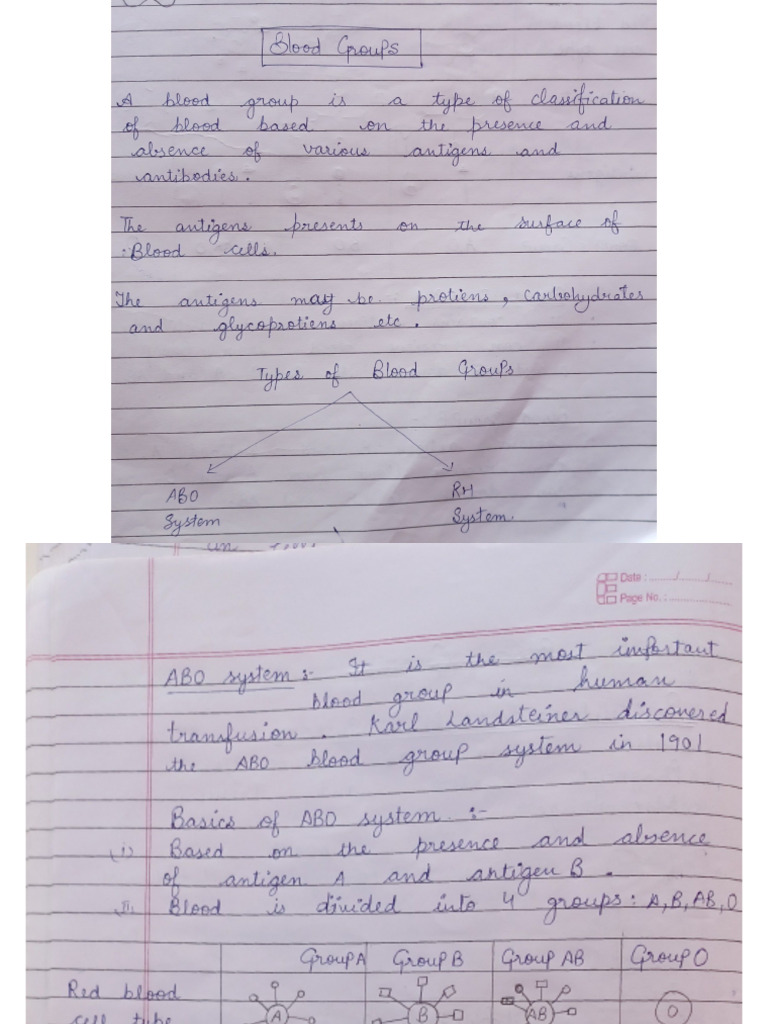 Blood Groups
A blood group is a type of classification
of blood based on the presence and
absence of various antigens and
antibodies.
The antigens presents on the surface of
Blood cells.
The antigens may be protiens, carbohydrates
and glycoprotiens etc.
Types of Blood Groups
ABO RH
System System
Date : ....../....../......
Page No. : ..................
ABO system :- It is the most important
blood group in human
transfusion. Karl Landsteiner discovered
the ABO blood group system in 1901
Basics of ABO system :-
(i) Based on the presence and absence
of antigen A and antigen B.
ii Blood is divided into 4 groups: A, B, AB, O
Group A Group B Group AB Group O
Red blood
cell type A B AB O